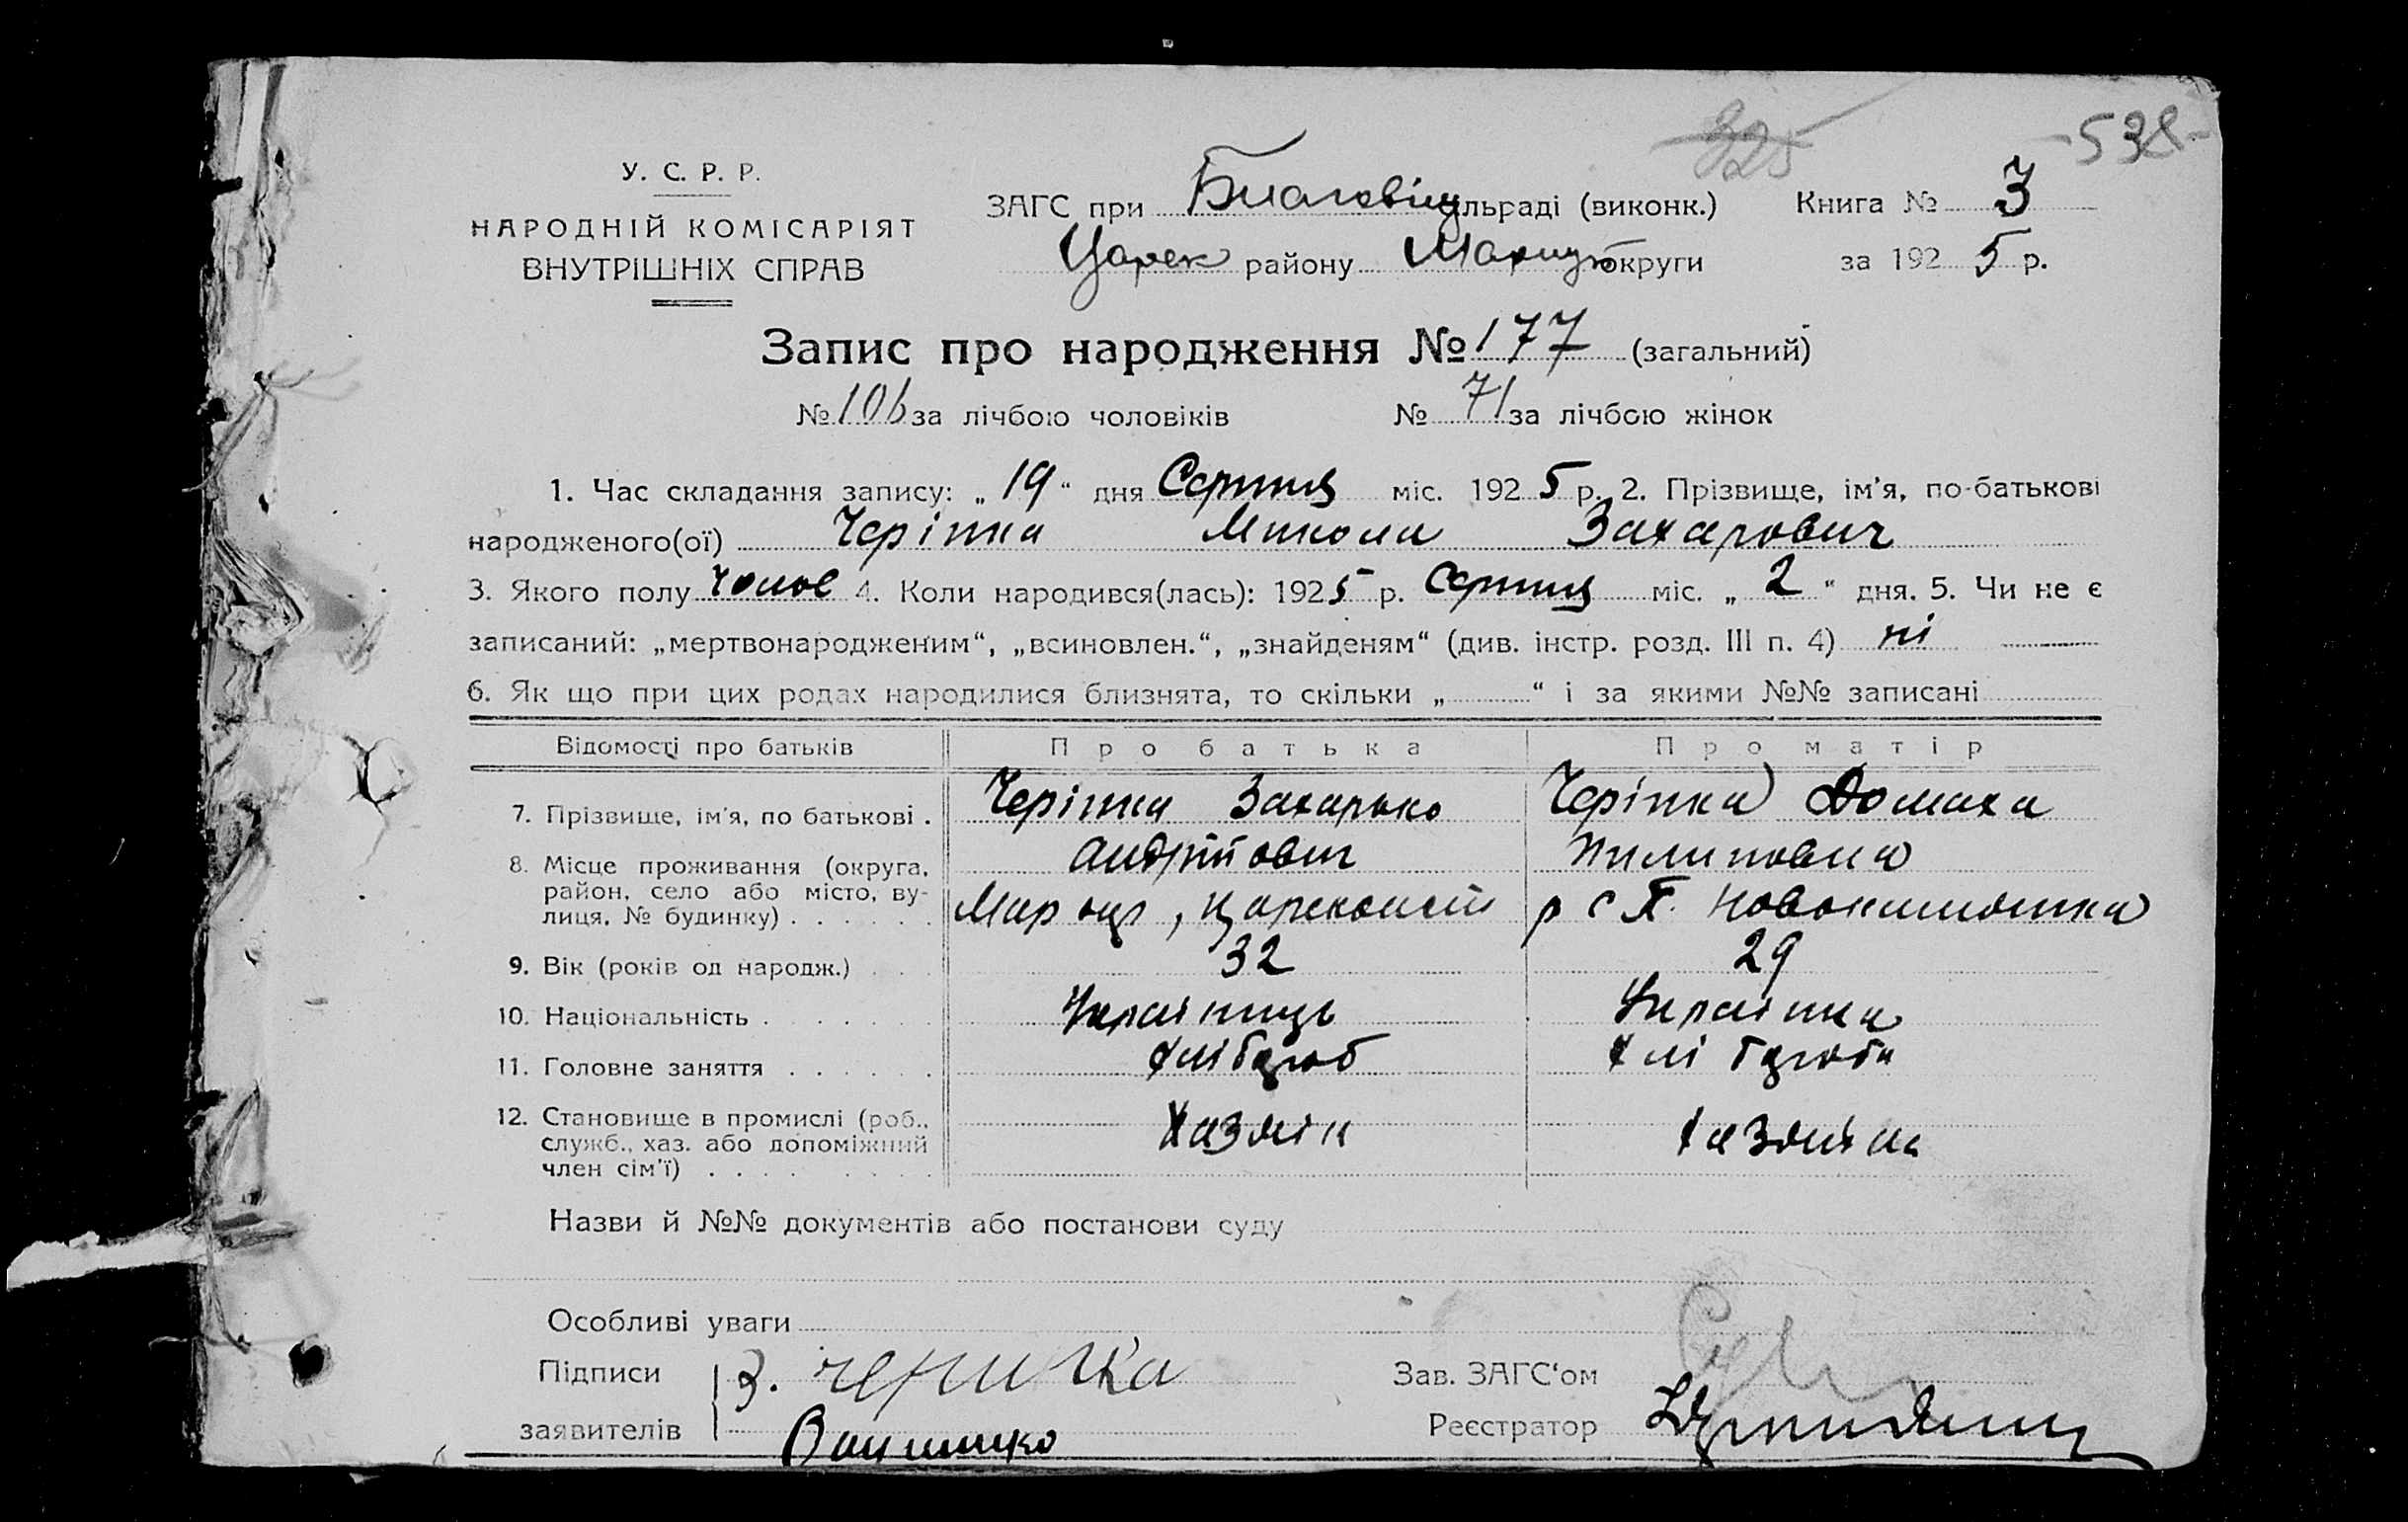 325 -538-
У. С. Р. Р.
НАРОДНІЙ КОМІСАРІЯТ
ВНУТРІШНІХ СПРАВ
ЗАГС при Благовіщ льраді (виконк.) Книга № 3
Царек району Маріуп округи за 1925 р.
Запис про народження № 177 (загальний)
№ 106 за лічбою чоловіків № 71 за лічбою жінок
1. Час складання запису: „19“ дня Серпня міс. 1925 р. 2. Прізвище, ім'я, по-батькові
народженого(ої) Черіпка Микола Захарович
3. Якого полу Чолов 4. Коли народився(лась): 1925 р. Серпня міс. „2“ дня. 5. Чи не є
записаний: „мертвонародженим“, „всиновлен.“, „знайденям“ (див. інстр. розд. III п. 4) ні
6. Як що при цих родах народилися близнята, то скільки „ “ і за якими №№ записані
Відомості про батьків Про батька Про матір
7. Прізвище, ім'я, по батькові . Черіпка Захарько Черіпка Домаха
Андрійович Пилиповна
8. Місце проживання (округа, район, село або місто, вулиця, № будинку) . . . . . . Мар окр, Царекокост р с Новокашпотка
9. Вік (років од народж.) . . . 32 29
10. Національність . . . . . . . Українць Українка
11. Головне заняття . . . . . . Хлібороб Хлібороба
12. Становище в промислі (роб., служб., хаз. або допоміжний член сім'ї) . . . . . . . . Хазяін Хазяіна
Назви й №№ документів або постанови суду
Особливі уваги
Підписи З. черипка Зав. ЗАГС‘ом
заявителів Реєстратор